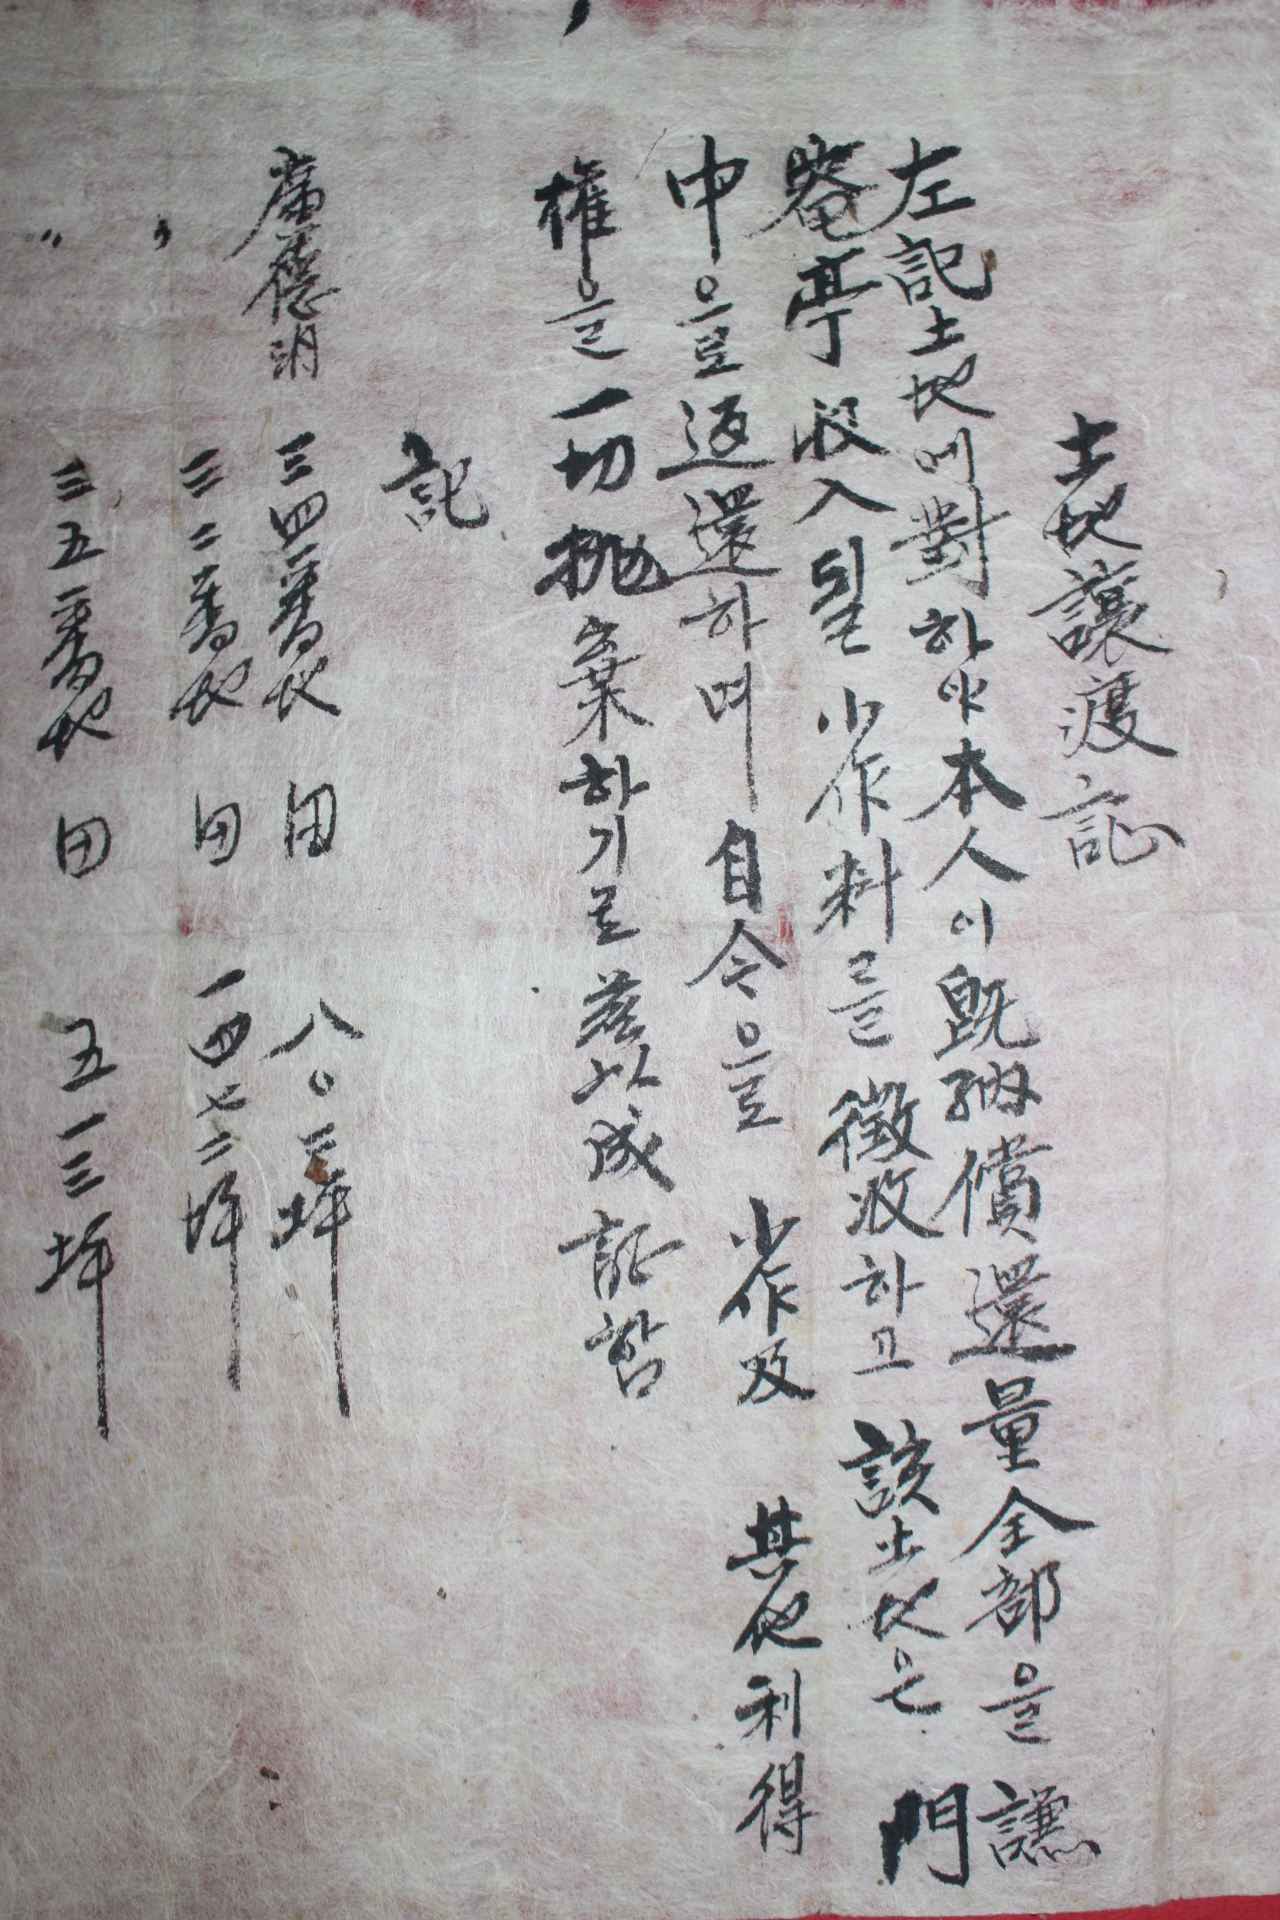 土地讓渡証
左記土地에對하야本人이旣納償還量全部을謙
菴亭收入될小作料를徵收하고該土地은門
中으로返還하며自今으로小作及其他利得
權을一切抛棄하기로玆以成証함
記
廣德洞 三四一番地 田 八〇三坪
〃 三二一番地 田 一四七二坪
〃 三五一番地 田 五一三坪